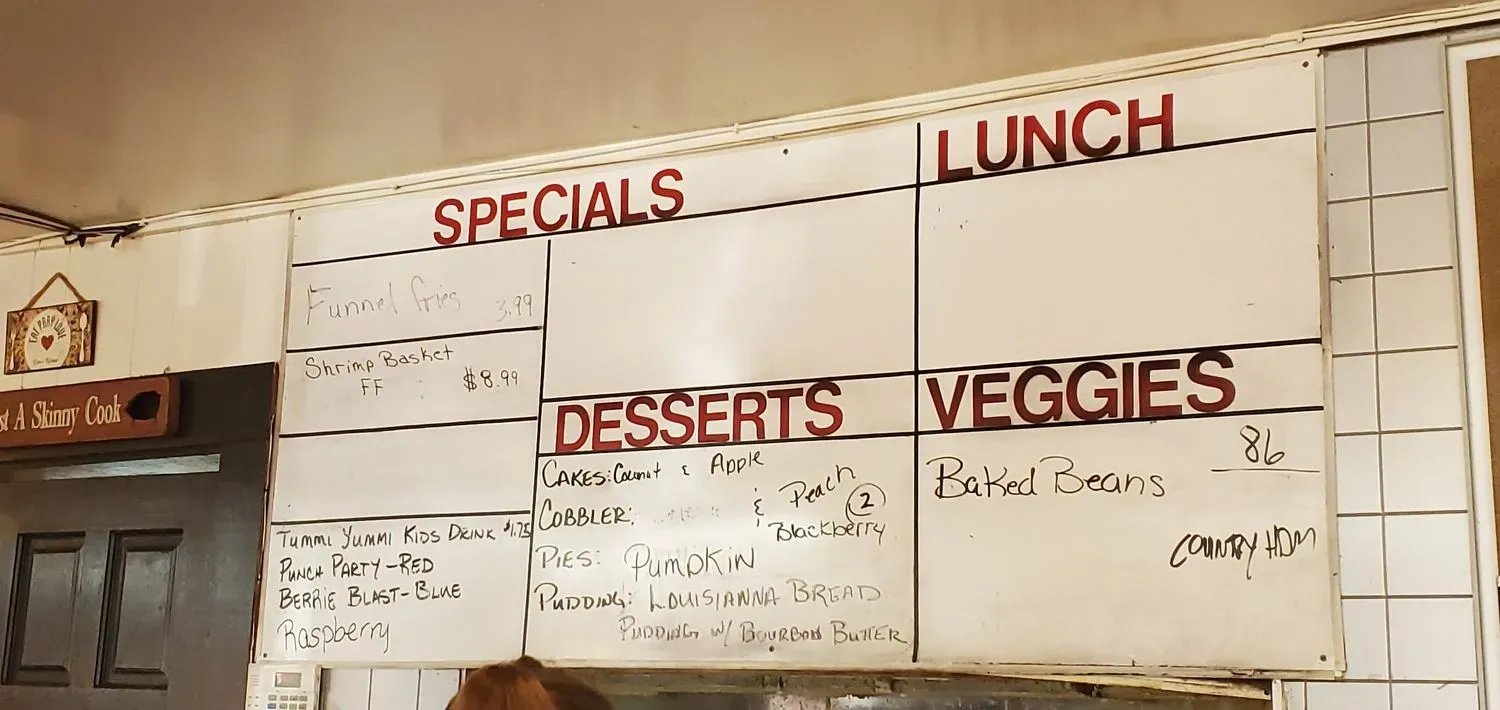 SPECIALS
Funnel fries 3.99
Shrimp Basket
FF $8.99
Tummi Yummi Kids Drink $1.75
Punch Party-Red
Berrie Blast-Blue
Raspberry
DESSERTS
Cakes: Coconut & Apple
Cobbler: & Peach
2
Blackberry
Pies: Pumpkin
Pudding: Louisianna Bread
Pudding w/ Bourbon Butter
LUNCH
VEGGIES
86
Baked Beans
Country Ham
EAT PRAY LOVE
st A Skinny Cook